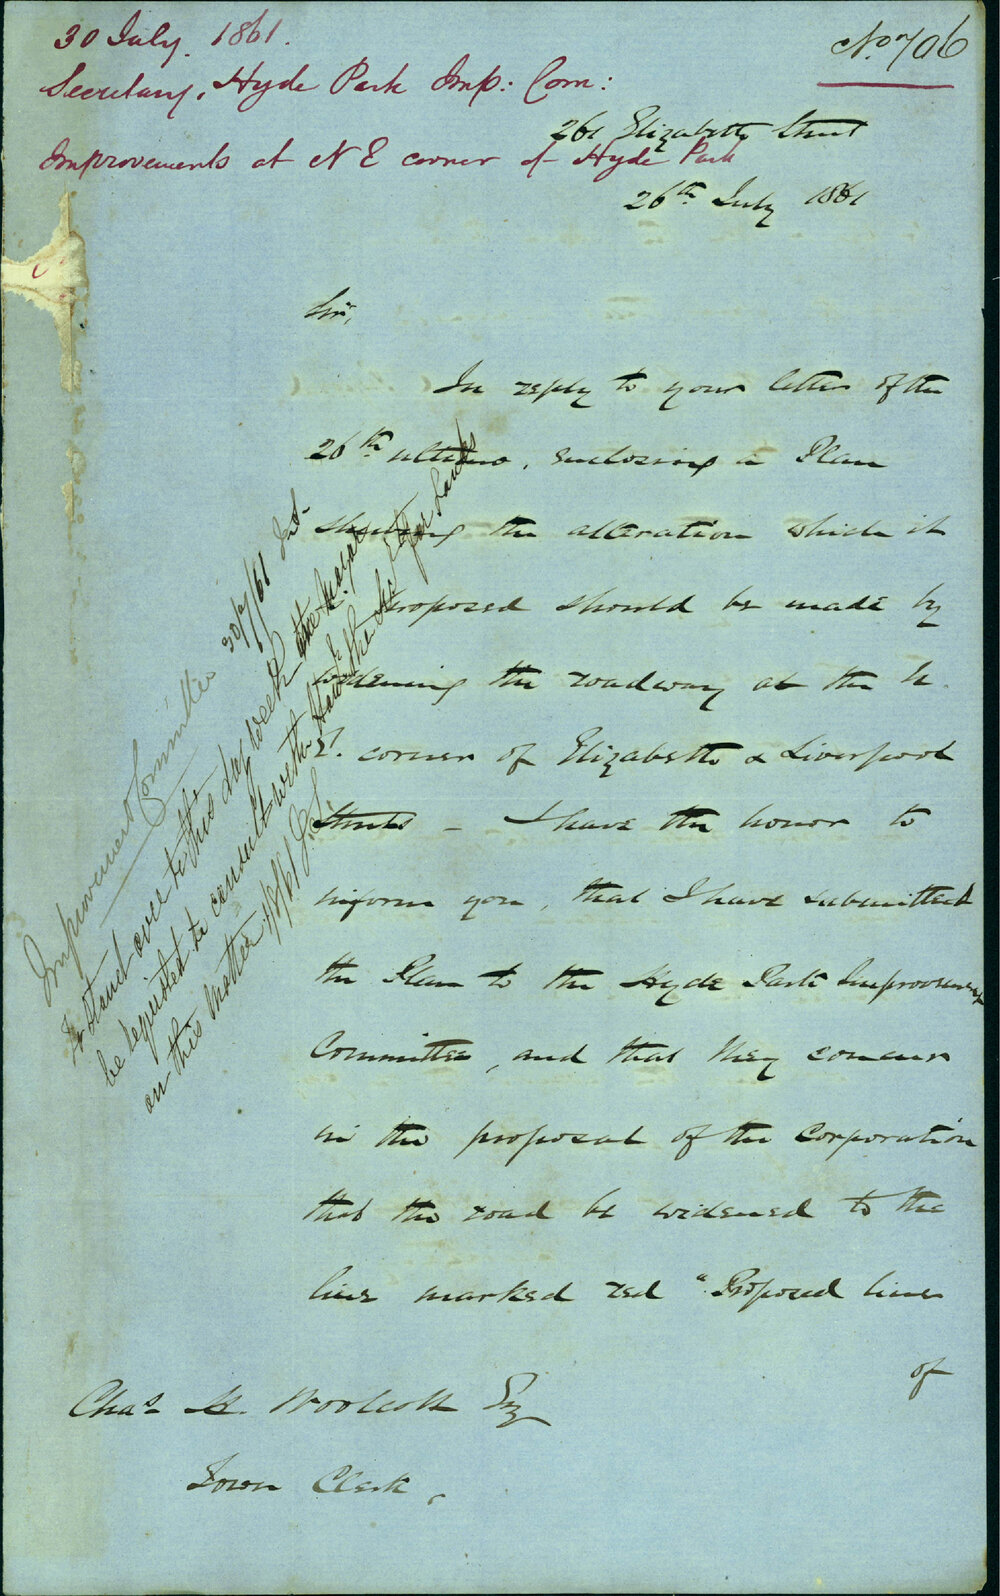 30 July. 1861.
No 706
Secretary, Hyde Park Imp: Com:
261 Elizabeth Street
Improvements at N E corner of Hyde Park
26th July 1861
Sir,
In reply to your letter of the
26th ultimo, enclosing a Plan
shewing the alteration which it
proposed should be made by
widening the roadway at the N.
E. corner of Elizabeth & Liverpool
Streets – I have the honor to
inform you, that I have submitted
the Plan to the Hyde Park Improvement
Committee, and that they concur
in the proposal of the Corporation
that the road be widened to the
line marked red "Proposed line
of
Chas H. Woolcott Esq
Town Clerk,
Improvement Committee 30/7/61
To stand over to this day week the Mayor
be requested to consult with the Hon. the Sec. for Lands
on this matter